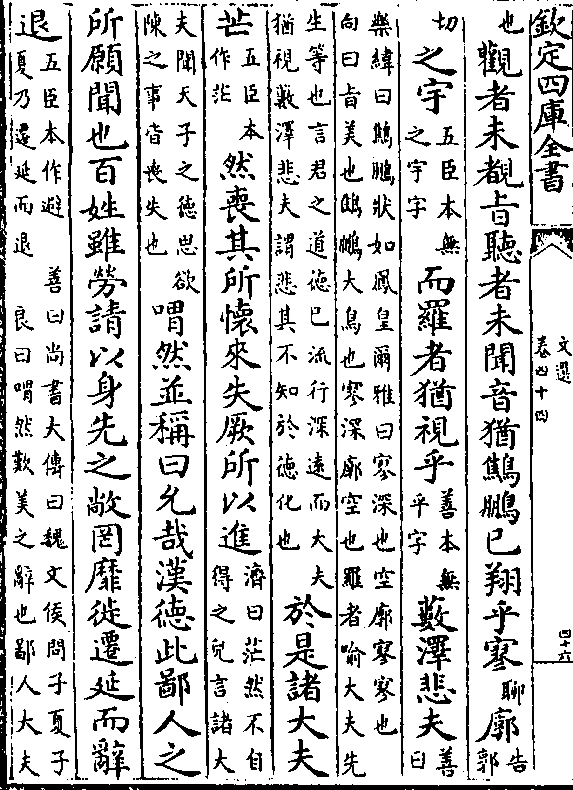 欽定四庫全書
文選
卷四十四
四十六
也
觀者未覩㫖聽者未聞音猶鷦鵬已翔乎寥
聊
廓
告
郭
切
之宇
五臣本無
之宇字
而羅者猶視乎
善本無
乎字
藪澤悲夫
善
曰
樂緯曰鷦鵬狀如鳳皇爾雅曰寥深也空廓寥寥也
向曰㫖美也鷦鵬大鳥也寥深廓空也羅者喻大夫先
生等也言君之道德已流行深遠而大夫
猶視藪澤悲夫謂悲其不知於德化也
於是諸大夫
芒
五臣本
作茫
然喪其所懐來失厥所以進
濟曰茫然不自
得之皃言諸大
夫聞天子之德思欲
陳之事皆喪失也
喟然並稱曰允哉漢德此鄙人之
所願聞也百姓雖勞請以身先之敞罔靡徙遷延而辭
退
五臣本作避　善曰尚書大傳曰魏文侯問子夏子
夏乃遷延而退　良曰喟然歎美之辭也鄙人大夫